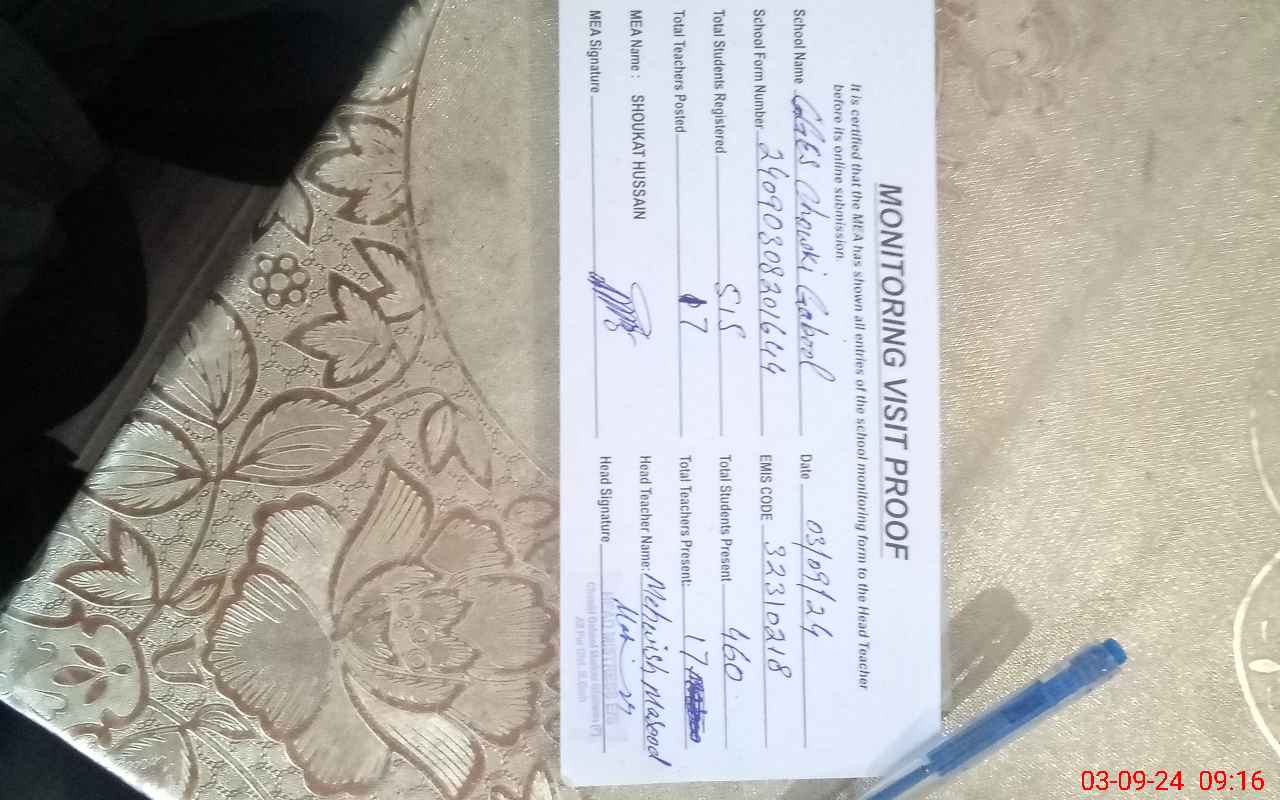 MONITORING VISIT PROOF
It is certified that the MEA has shown all entries of the school monitoring form to the Head Teacher
before its online submission.
School Name GGES Chowki Gabool Date 03/09/24
School Form Number 24090308201644 EMIS CODE 32310218
Total Students Registered 515 Total Students Present 460
Total Teachers Posted 17 Total Teachers Present: 17
MEA Name : SHOUKAT HUSSAIN Head Teacher Name: Mehwish Masood
MEA Signature Head Signature
HEADMISTRESS
03-09-24 09:16